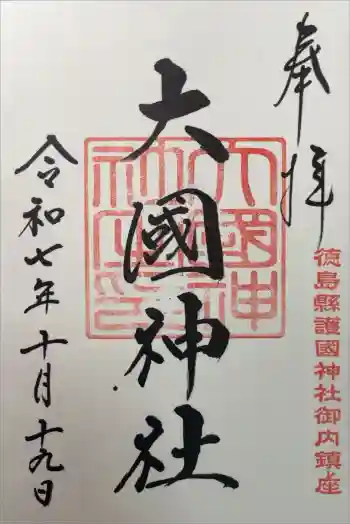 奉拝
徳島縣護國神社御内鎮座
大國神社
大國神社之印
令和七年十月十九日